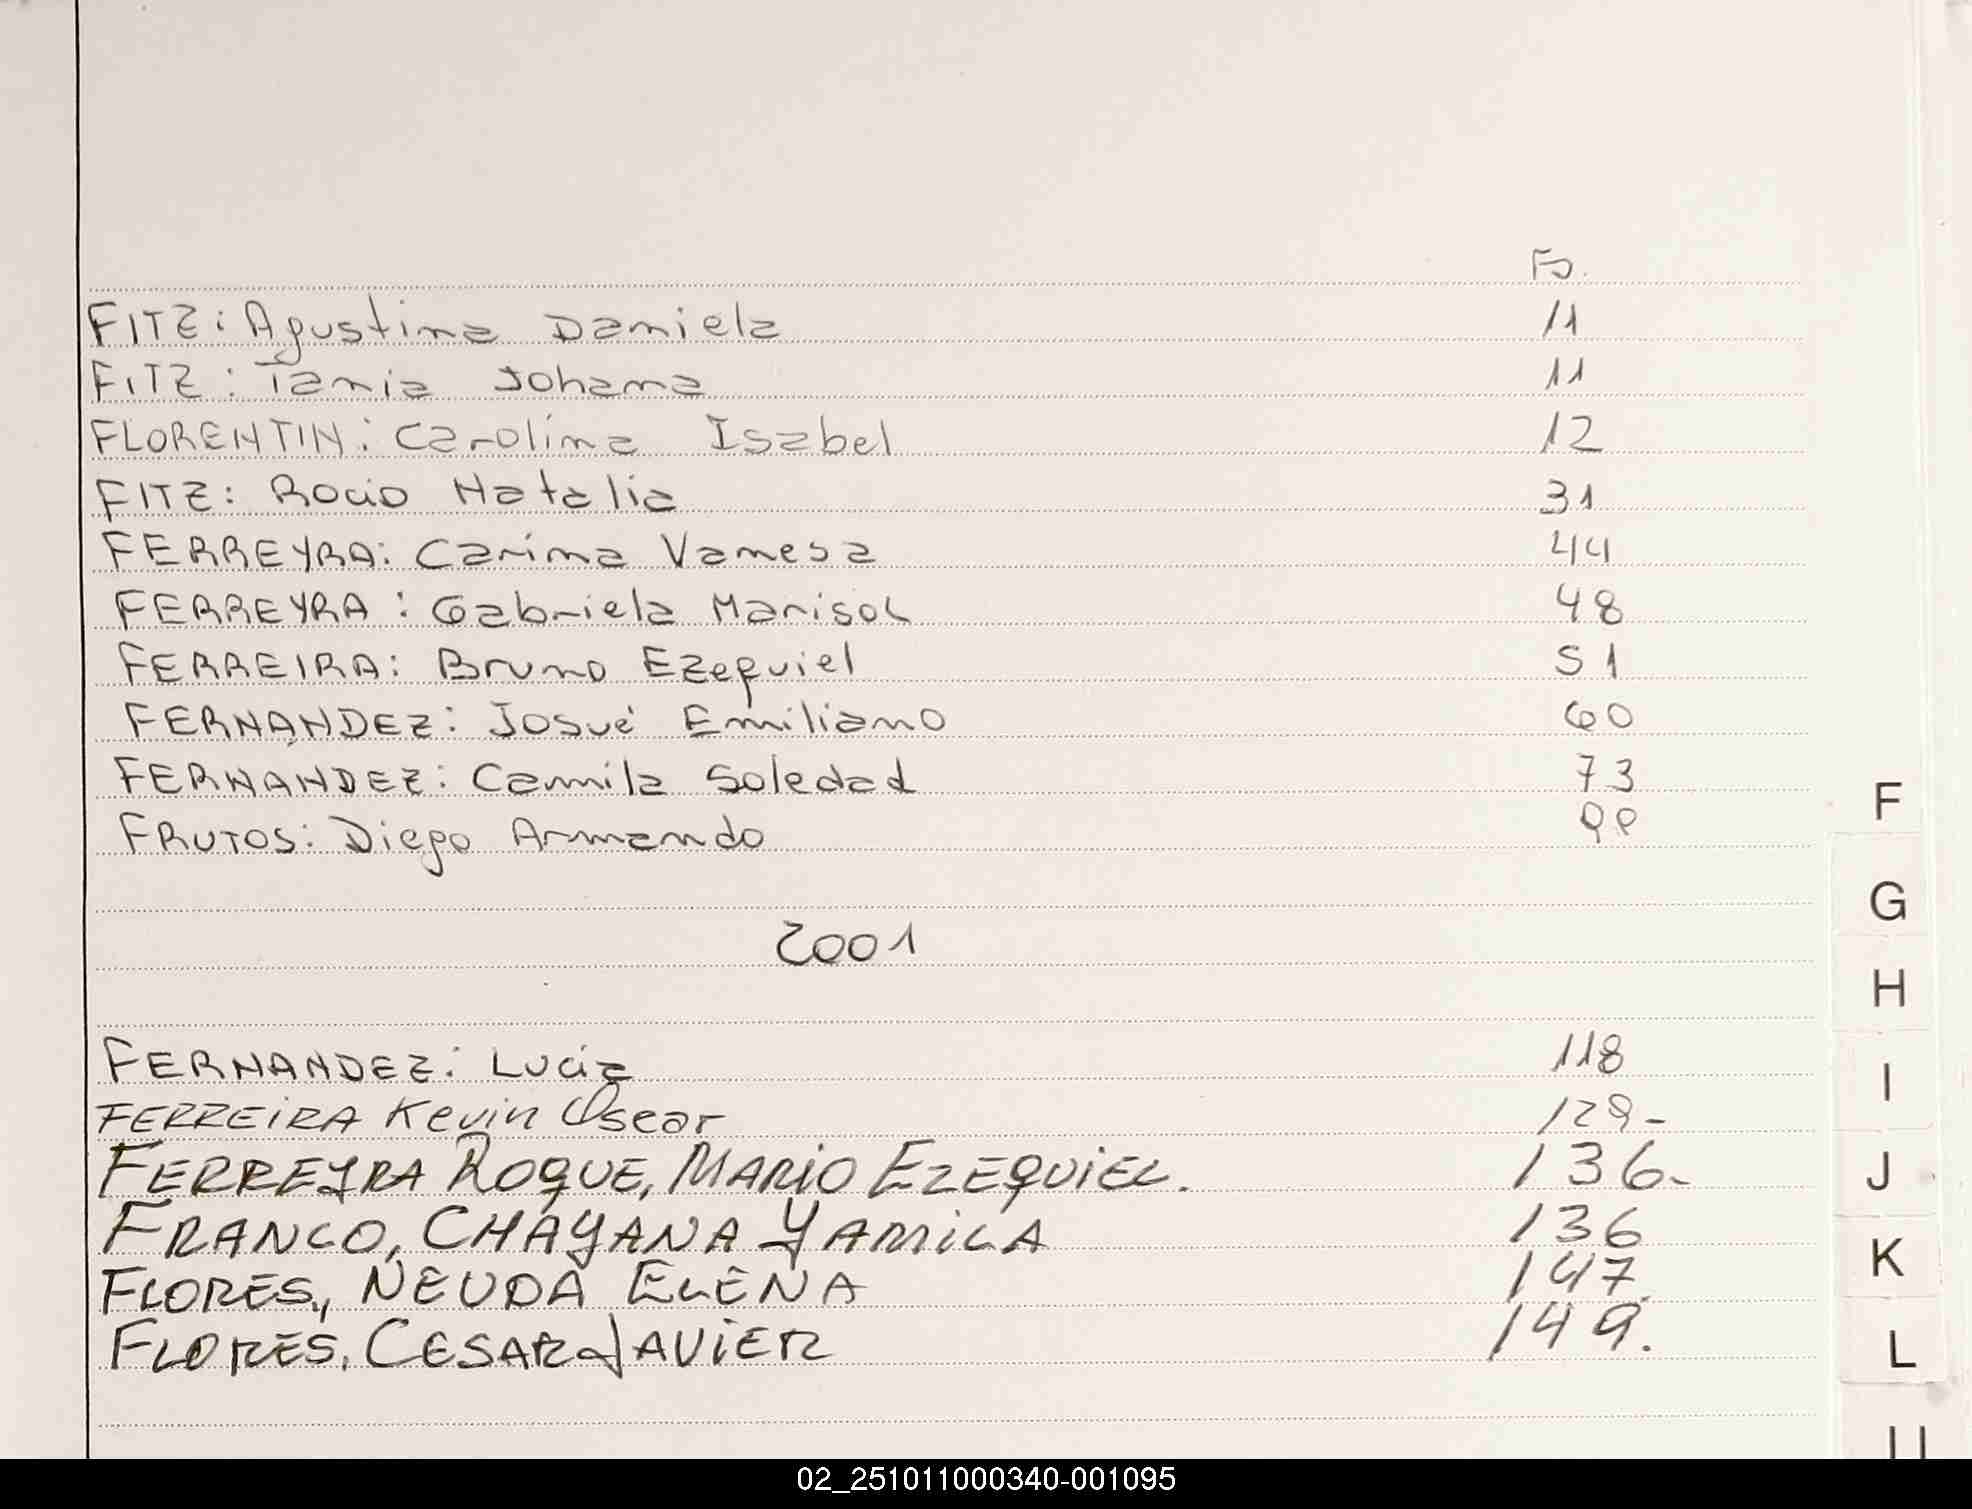 Fo.
FITZ: Agustina Daniela 11
FITZ: Tania Johana 11
FLORENTIN: Carolina Isabel 12
FITZ: Rocio Natalia 31
FERREYRA: Carina Vanesa 44
FERREYRA: Gabriela Marisol 48
FERREIRA: Bruno Ezequiel 51
FERNANDEZ: Josué Emiliano 60
FERNANDEZ: Camila Soledad 73
FRUTOS: Diego Armando
2001
FERNANDEZ: Lucia 118
FERREIRA Kevin Oscar 129-
FERREYRA ROQUE, MARIO EZEQUIEL. 136-
FRANCO, CHAYANA YAMILA 136
FLORES, NEUDA ELENA 147.
FLORES, CESAR JAVIER 149.
F
G
H
I
J
K
L
02_251011000340-001095